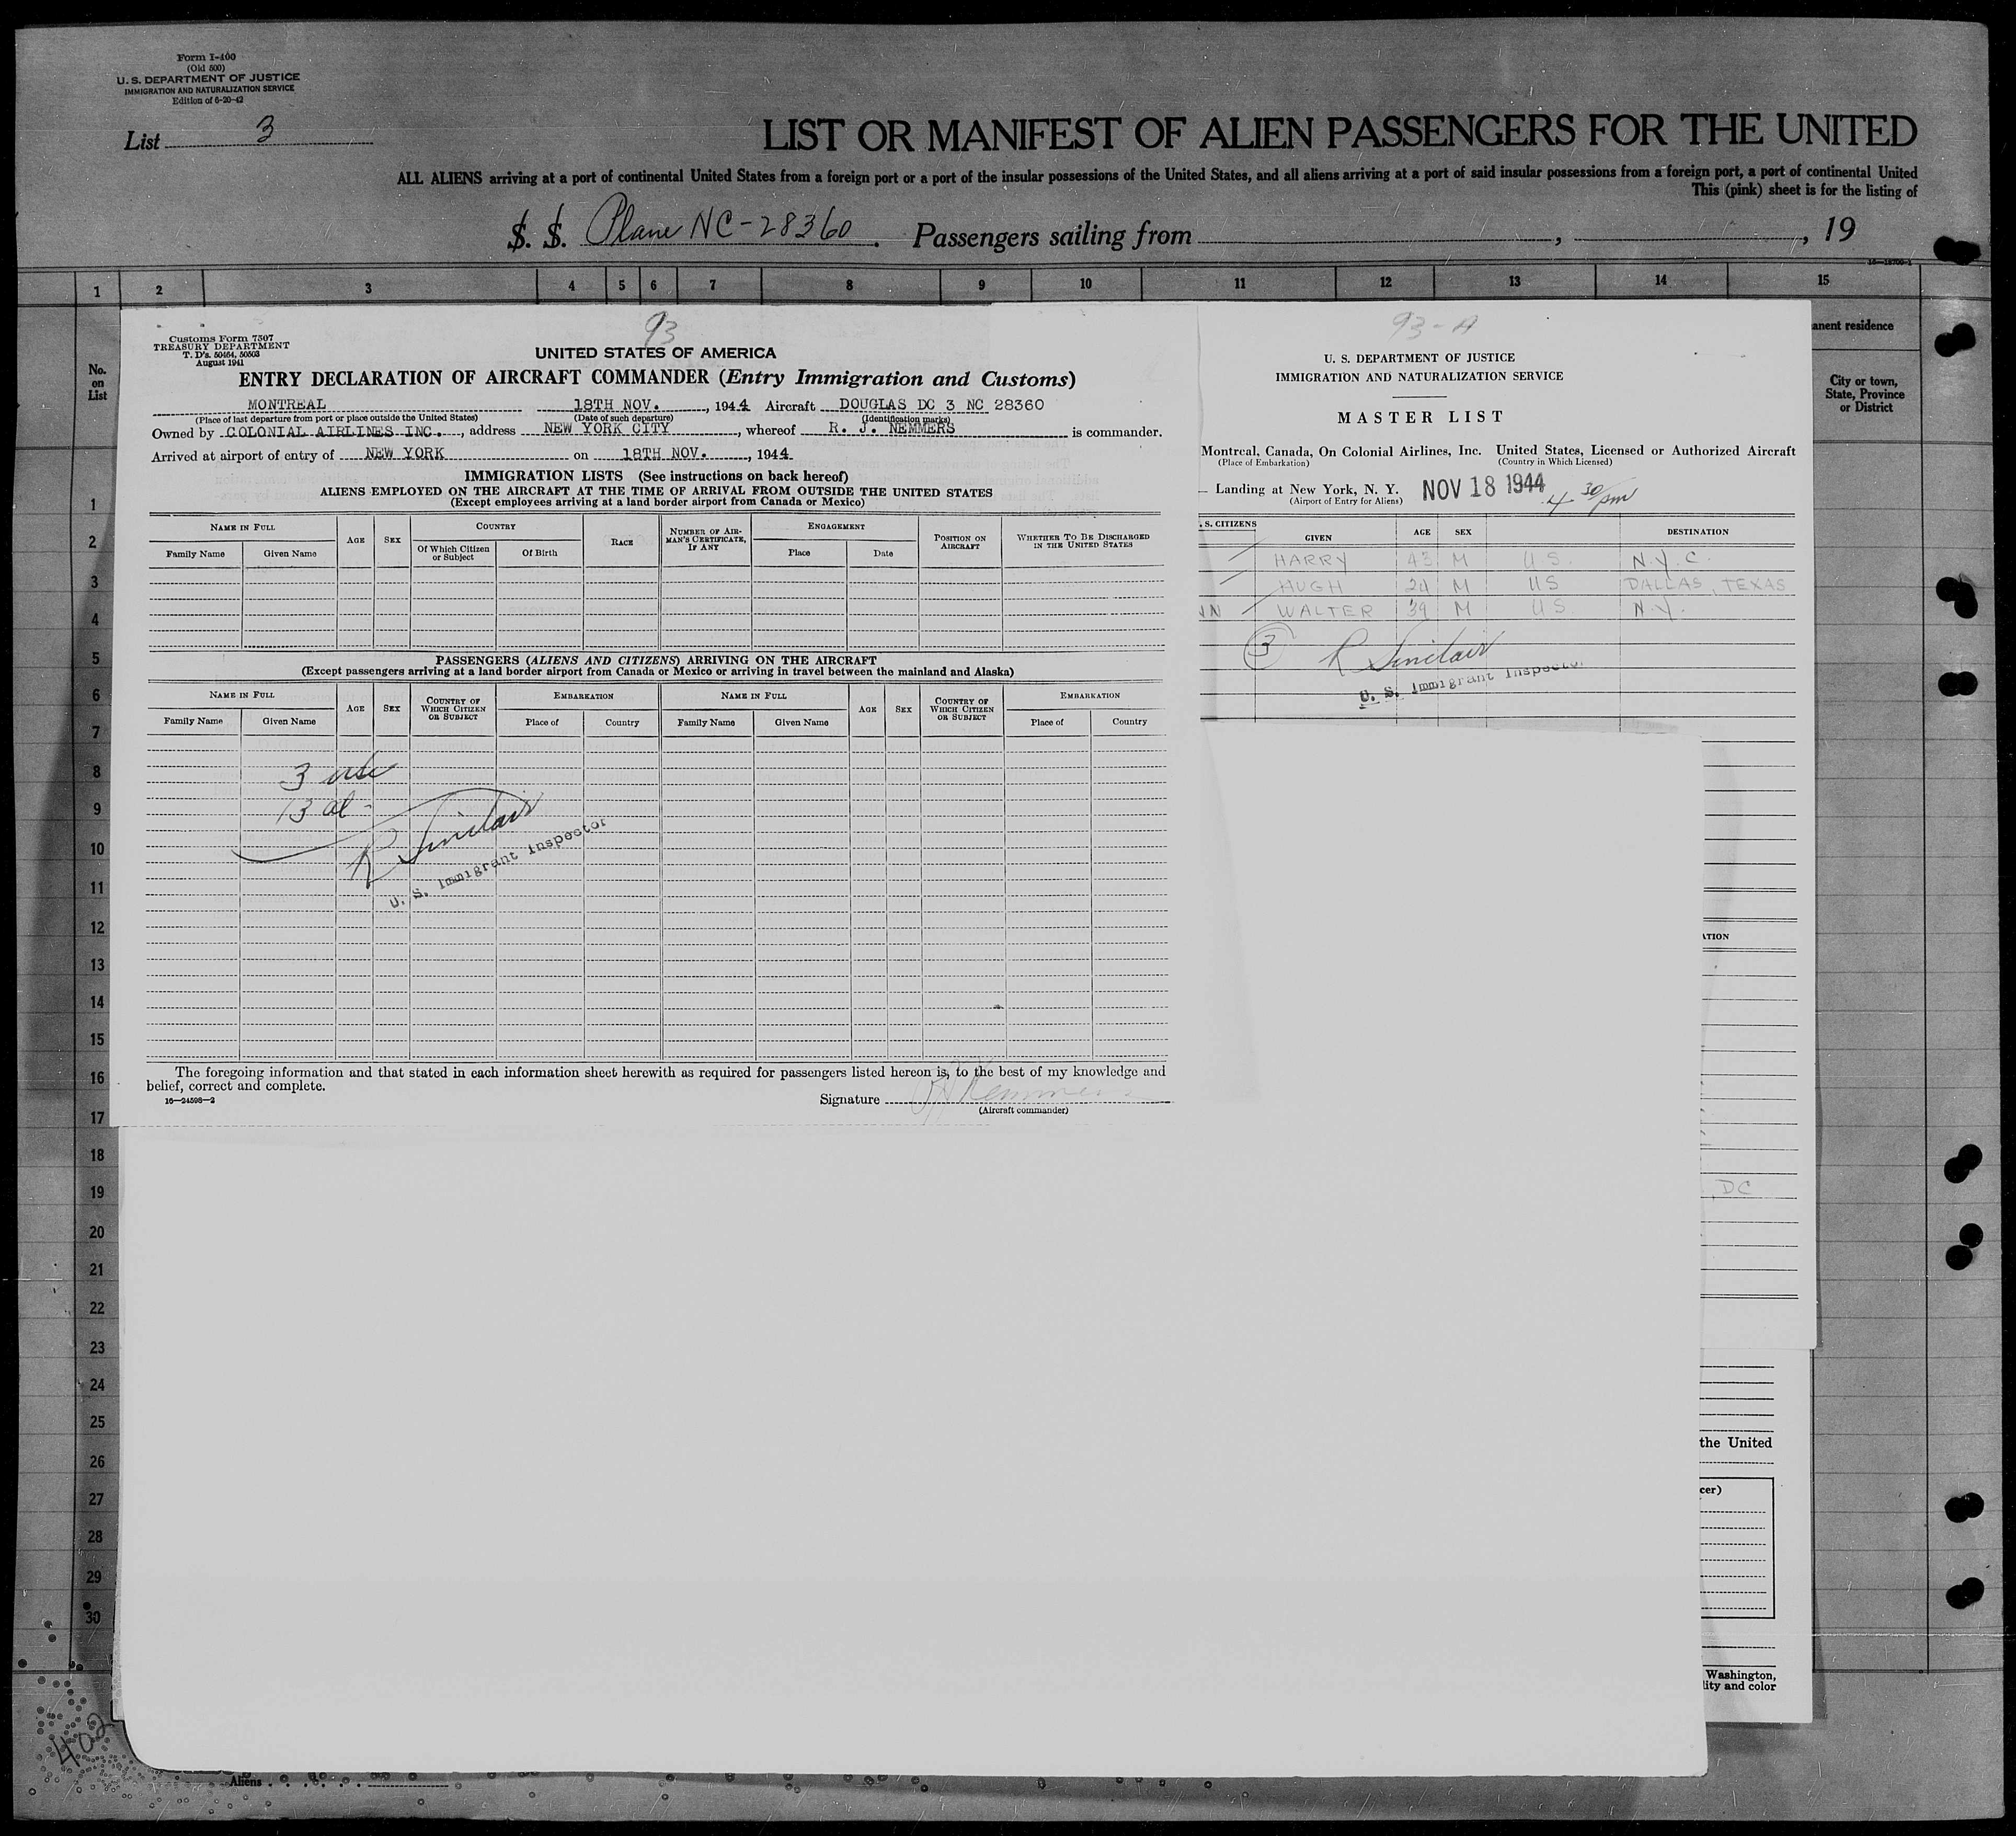 Form I-400
(Old 500)
U. S. DEPARTMENT OF JUSTICE
IMMIGRATION AND NATURALIZATION SERVICE
Edition of 6-20-42
List 3
LIST OR MANIFEST OF ALIEN PASSENGERS FOR THE UNITED
ALL ALIENS arriving at a port of continental United States from a foreign port or a port of the insular possessions of the United States, and all aliens arriving at a port of said insular possessions from a foreign port, a port of continental United
This (pink) sheet is for the listing of
S. S. Plane NC-28360. Passengers sailing from , , 19
1 2 3 4 5 6 7 8 9 10 11 12 13 14 15
No. on List
anent residence
City or town, State, Province or District
93
Customs Form 7507
TREASURY DEPARTMENT
T. D's. 50464, 50503
August 1941
UNITED STATES OF AMERICA
ENTRY DECLARATION OF AIRCRAFT COMMANDER (Entry Immigration and Customs)
MONTREAL 18TH NOV. , 1944 Aircraft DOUGLAS DC 3 NC 28360
(Place of last departure from port or place outside the United States) (Date of such departure) (Identification marks)
Owned by COLONIAL AIRLINES INC. , address NEW YORK CITY , whereof R. J. NEMMERS is commander.
Arrived at airport of entry of NEW YORK on 18TH NOV. , 1944
IMMIGRATION LISTS (See instructions on back hereof)
ALIENS EMPLOYED ON THE AIRCRAFT AT THE TIME OF ARRIVAL FROM OUTSIDE THE UNITED STATES
(Except employees arriving at a land border airport from Canada or Mexico)
NAME IN FULL AGE SEX COUNTRY RACE NUMBER OF AIRMAN'S CERTIFICATE, IF ANY ENGAGEMENT POSITION ON AIRCRAFT WHETHER TO BE DISCHARGED IN THE UNITED STATES
Family Name Given Name Of Which Citizen or Subject Of Birth Place Date
PASSENGERS (ALIENS AND CITIZENS) ARRIVING ON THE AIRCRAFT
(Except passengers arriving at a land border airport from Canada or Mexico or arriving in travel between the mainland and Alaska)
NAME IN FULL AGE SEX COUNTRY OF WHICH CITIZEN OR SUBJECT EMBARKATION NAME IN FULL AGE SEX COUNTRY OF WHICH CITIZEN OR SUBJECT EMBARKATION
Family Name Given Name Place of Country Family Name Given Name Place of Country
3 usc
13 al -
R Sinclair
U. S. Immigrant Inspector
The foregoing information and that stated in each information sheet herewith as required for passengers listed hereon is, to the best of my knowledge and
belief, correct and complete.
16—24598—2
Signature
(Aircraft commander)
93-A
U. S. DEPARTMENT OF JUSTICE
IMMIGRATION AND NATURALIZATION SERVICE
MASTER LIST
Montreal, Canada, On Colonial Airlines, Inc. United States, Licensed or Authorized Aircraft
(Place of Embarkation) (Country in Which Licensed)
Landing at New York, N. Y. NOV 18 1944 4 30 pm
(Airport of Entry for Aliens)
. S. CITIZENS GIVEN AGE SEX DESTINATION
HARRY 43 M U S. N.Y.C.
HUGH 24 M US DALLAS, TEXAS
NN WALTER 39 M US N.Y.
3 R Sinclair
U. S. Immigrant Inspector
ATION
, DC
the United
cer)
Washington,
lity and color
1
2
3
4
5
6
7
8
9
10
11
12
13
14
15
16
17
18
19
20
21
22
23
24
25
26
27
28
29
30
402
Aliens